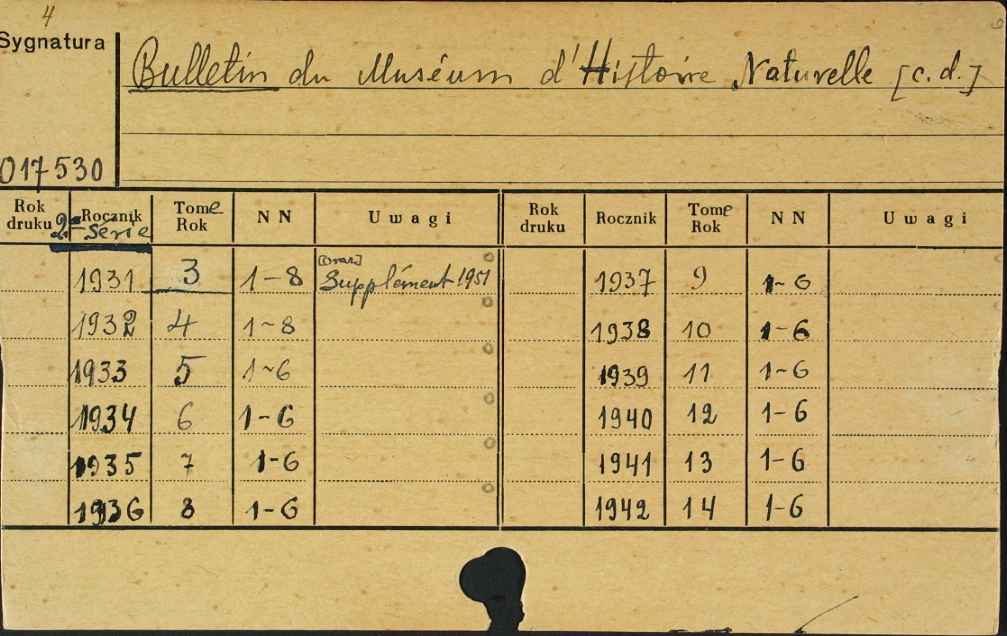 4
Sygnatura
Bulletin du Muséum d'Histoire Naturelle [c.d.]
017530
Rok druku 2e Rocznik serie Tome Rok NN Uwagi Rok druku Rocznik Tome Rok NN Uwagi
1931 3 1-8 [oraz] Supplément 1951 1937 9 1-6
1932 4 1-8 1938 10 1-6
1933 5 1-6 1939 11 1-6
1934 6 1-6 1940 12 1-6
1935 7 1-6 1941 13 1-6
1936 8 1-6 1942 14 1-6